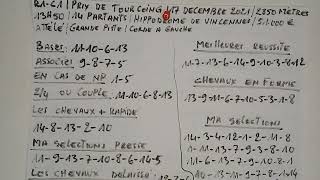 R1-C1 | PRIX DE TOURCOING | 17 DECEMBRE 2021 | 2850 METRES
13H50 | 14 PARTANTS | HIPPODROME DE VINCENNES | 51.000 €
ATTELÉ | GRANDE PISTE | CORDE A GAUCHE
BASES: 11-10-6-13
ASSOCIES 9-8-7-5
EN CAS DE NP 1-5
2/4 OU COUPLE: 11-10-6-8-13
LES CHEVAUX + RAPIDE
14-8-13-2-10
MA SELECTIONS PRESSE
11-9-13-7-10-8-6-14-5
LES CHEVAUX DELAISSÉ
MEILLEURE REUSSITE
11-7-10-9-13-8-14
CHEVAUX EN FORME
13-9-11-6-7-10-5-3-1-8
MA SELECTIONS
14-3-4-12-1-2-11-8
11-13-7-9-10-3-8-1
11-6-13-7-9-10-8-1